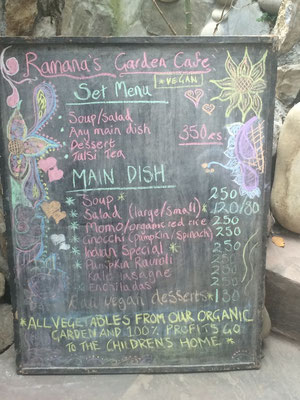 Ramana's Garden Cafe
*VEGAN
Set Menu
Soup/salad
Any main dish
Dessert 350rs
Tulsi Tea
MAIN DISH
*Soup* 250
*Salad (large/small)* 120/80
*Momo/organic red rice 250
Gnocchi (Pumpkin/spinach) 250
*Indian Special* 250
*Pumpkin Ravioli 250
lasagne 250
Enchiladas 250
vegan desserts* 130
*ALL VEGETABLES FROM OUR ORGANIC
GARDEN AND 100% PROFITS GO
TO THE CHILDREN'S HOME*